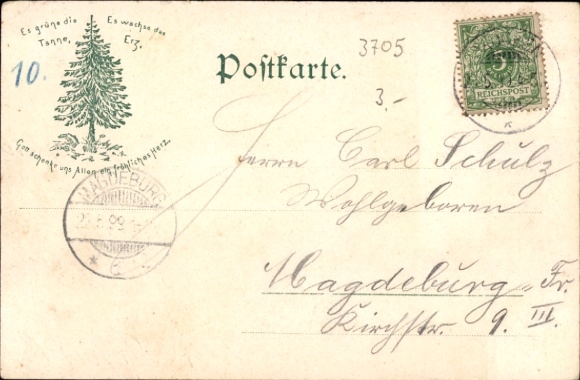 Es grüne die Tanne,
Es wachse das Erz,
Gott schenke uns Allen ein fröhliches Herz.
10.
3705
3.-
Postkarte.
5
REICHSPOST
MAGDEBURG
99
Herrn Carl Schulz
Wohlgeboren
Magdeburg-Fr.
Kirchstr. 9. III.